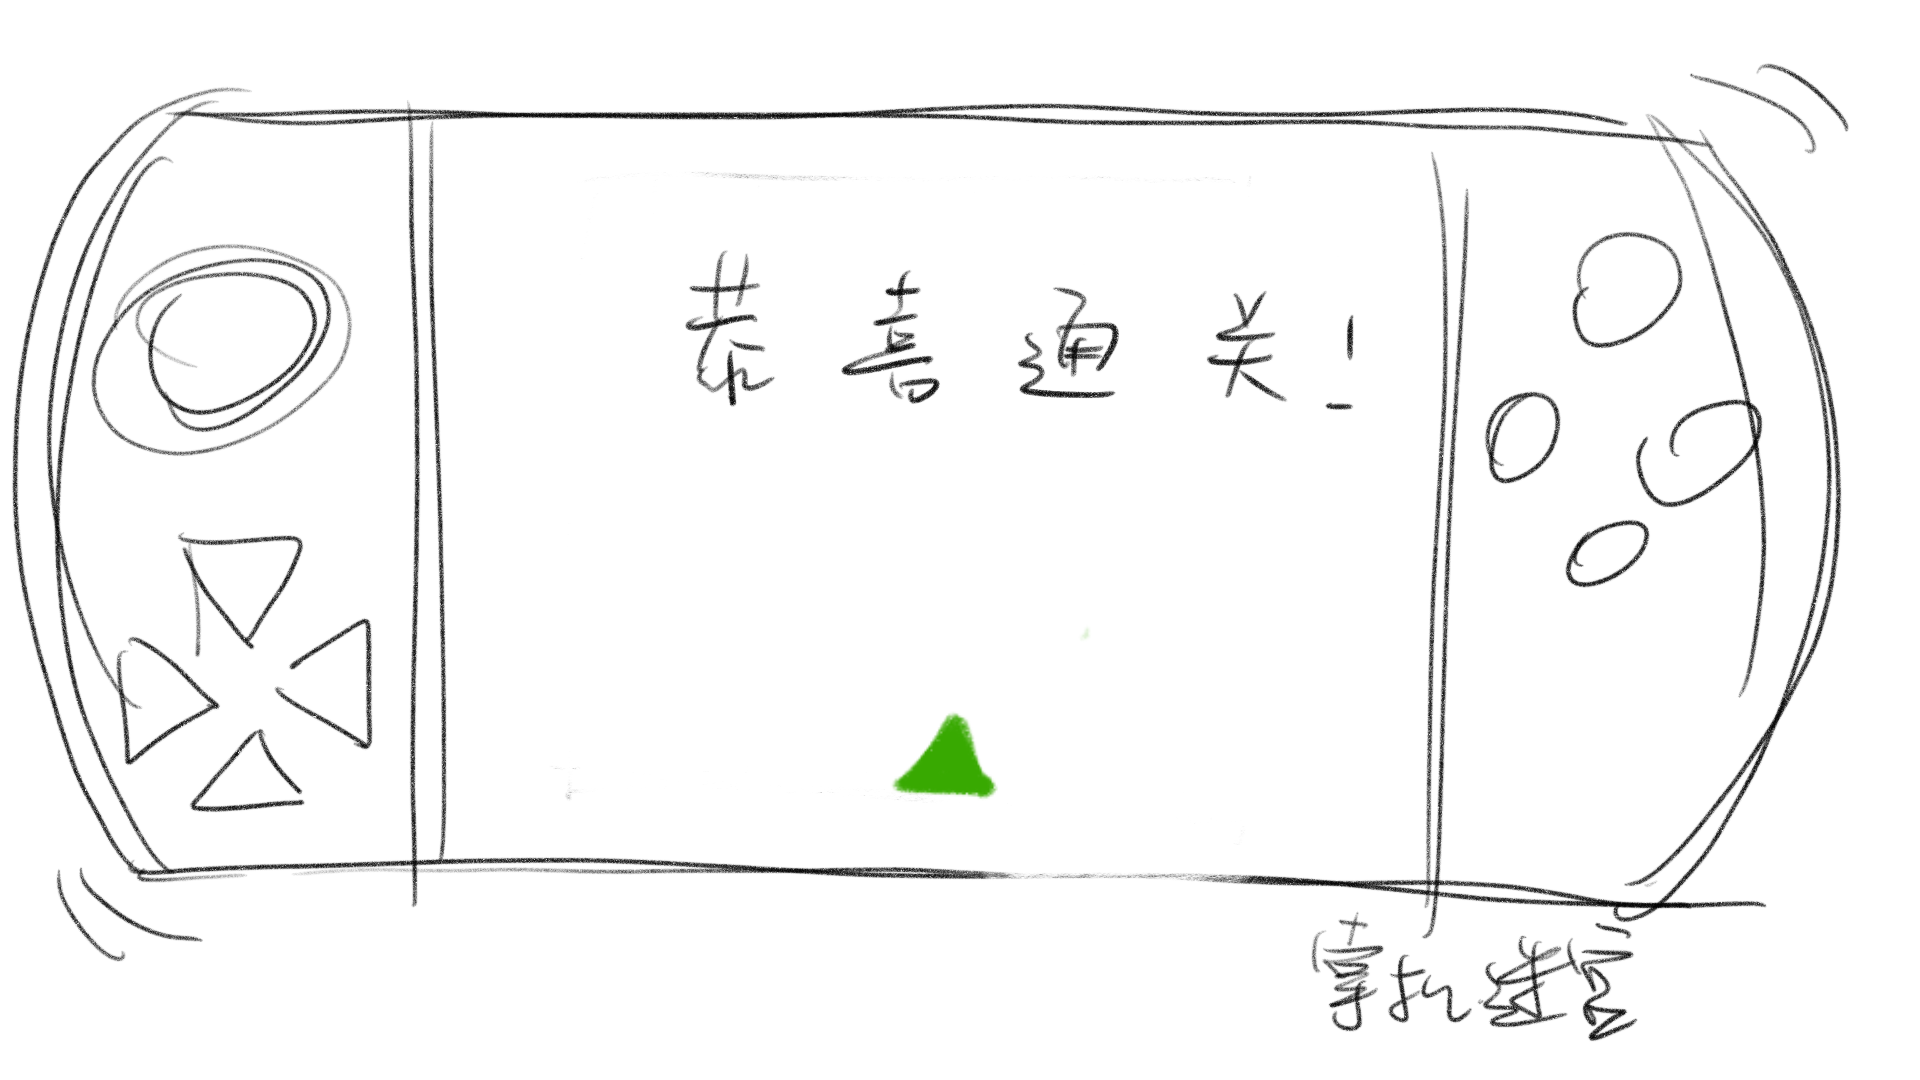 恭喜通关！
掌机迷宫